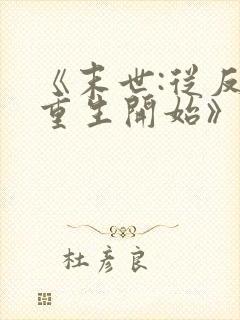 《末世:從反
重生開始》
杜彥良